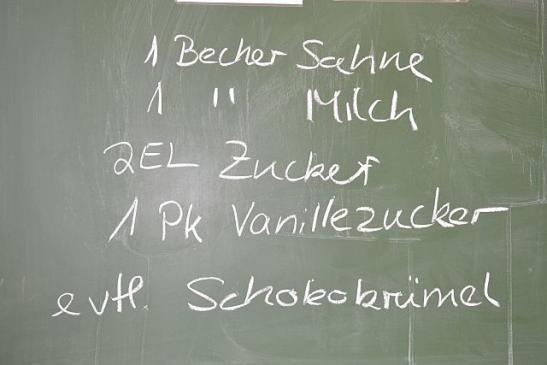 1 Becher Sahne
1 " Milch
2EL Zucker
1 Pk Vanillezucker
evtl. Schokokrümel